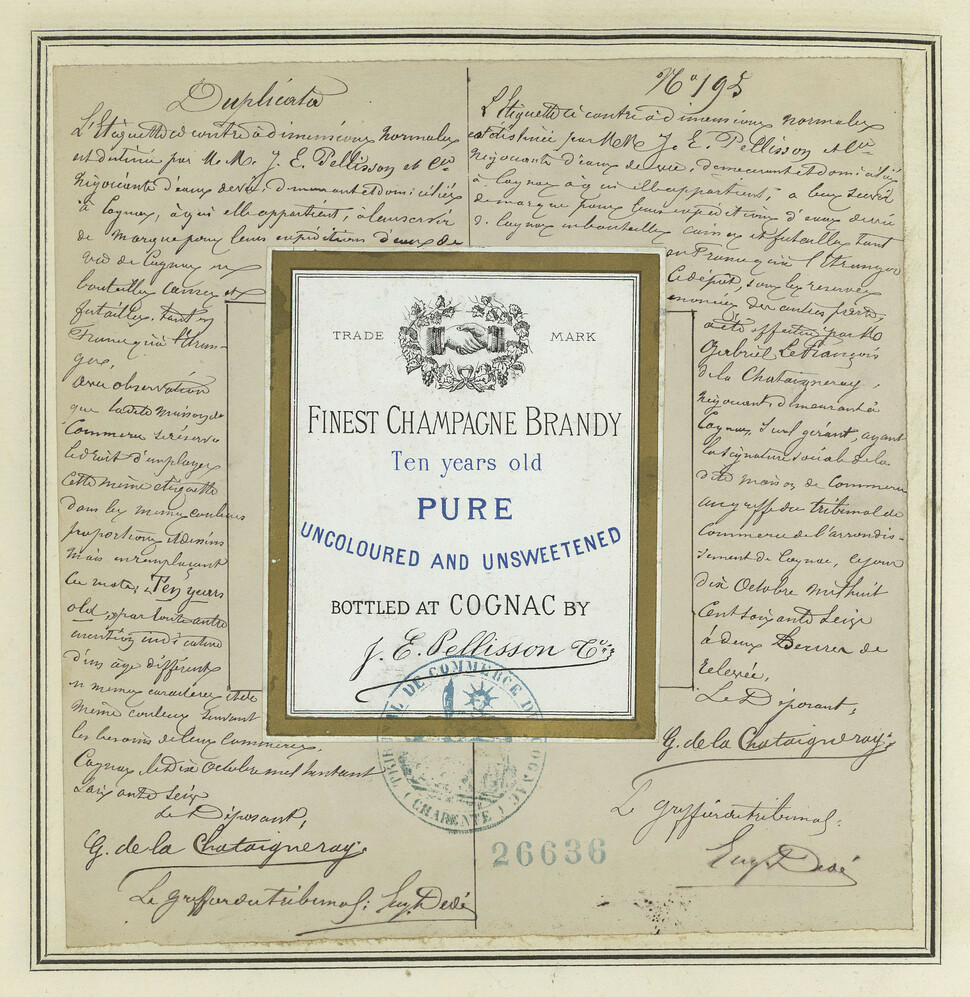 Duplicata
L'Etiquette ci contre à dimensions normales
est destinée par M.M. J. E. Pellisson et Cie
Négociants d'eaux de vie, demeurant et domiciliés
à Cognac, à qui elle appartient, à leur servir
de marque pour leurs expéditions d'eaux de
vie de Cognac en
bouteilles caisses et
futailles, tant en
France qu'à l'Etran-
ger,
avec observation
que la dite maison de
Commerce se réserve
le droit d'employer
cette même étiquette
dans les mêmes couleurs
proportions et dessins
mais en remplaçant
les mots: Ten years
old, par toute autre
mention indicative
d'un âge différent
en mêmes caractères et de
même couleur suivant
les besoins de leur commerce.
Cognac, le Dix Octobre mil huit cent
soixante seize
Le Déposant,
G. de la Chataigneray.
Le greffier du tribunal: Eug. Dedé
No 195
L'Etiquette ci contre à dimensions normales
est destinée par MM. J. E. Pellisson et Cie
Négociants d'eaux de vie, demeurant et domiciliés
à Cognac à qui elle appartient, à leur servir
de marque pour leurs expéditions d'eaux de vie
de Cognac en bouteilles caisses et futailles tant
en France qu'à l'Etranger
Ce dépôt, sous les réserves
énoncées des autres parts,
a été effectué par M.
Gabriel Le François
de la Chataigneray,
négociant, demeurant à
Cognac, seul gérant, ayant
la signature sociale de la
dite maison de Commerce
au greffe du tribunal de
Commerce de l'arrondis-
sement de Cognac, ce jour
dix Octobre mil huit
Cent soixante Seize
à deux heures de
relevée,
Le Déposant,
G. de la Chataigneray.
Le greffier du tribunal:
Eug. Dedé
TRADE MARK
FINEST CHAMPAGNE BRANDY
Ten years old
PURE
UNCOLOURED AND UNSWEETENED
BOTTLED AT COGNAC BY
J. E. Pellisson & Cie
TRIBUNAL DE COMMERCE DE COGNAC
(CHARENTE)
26636